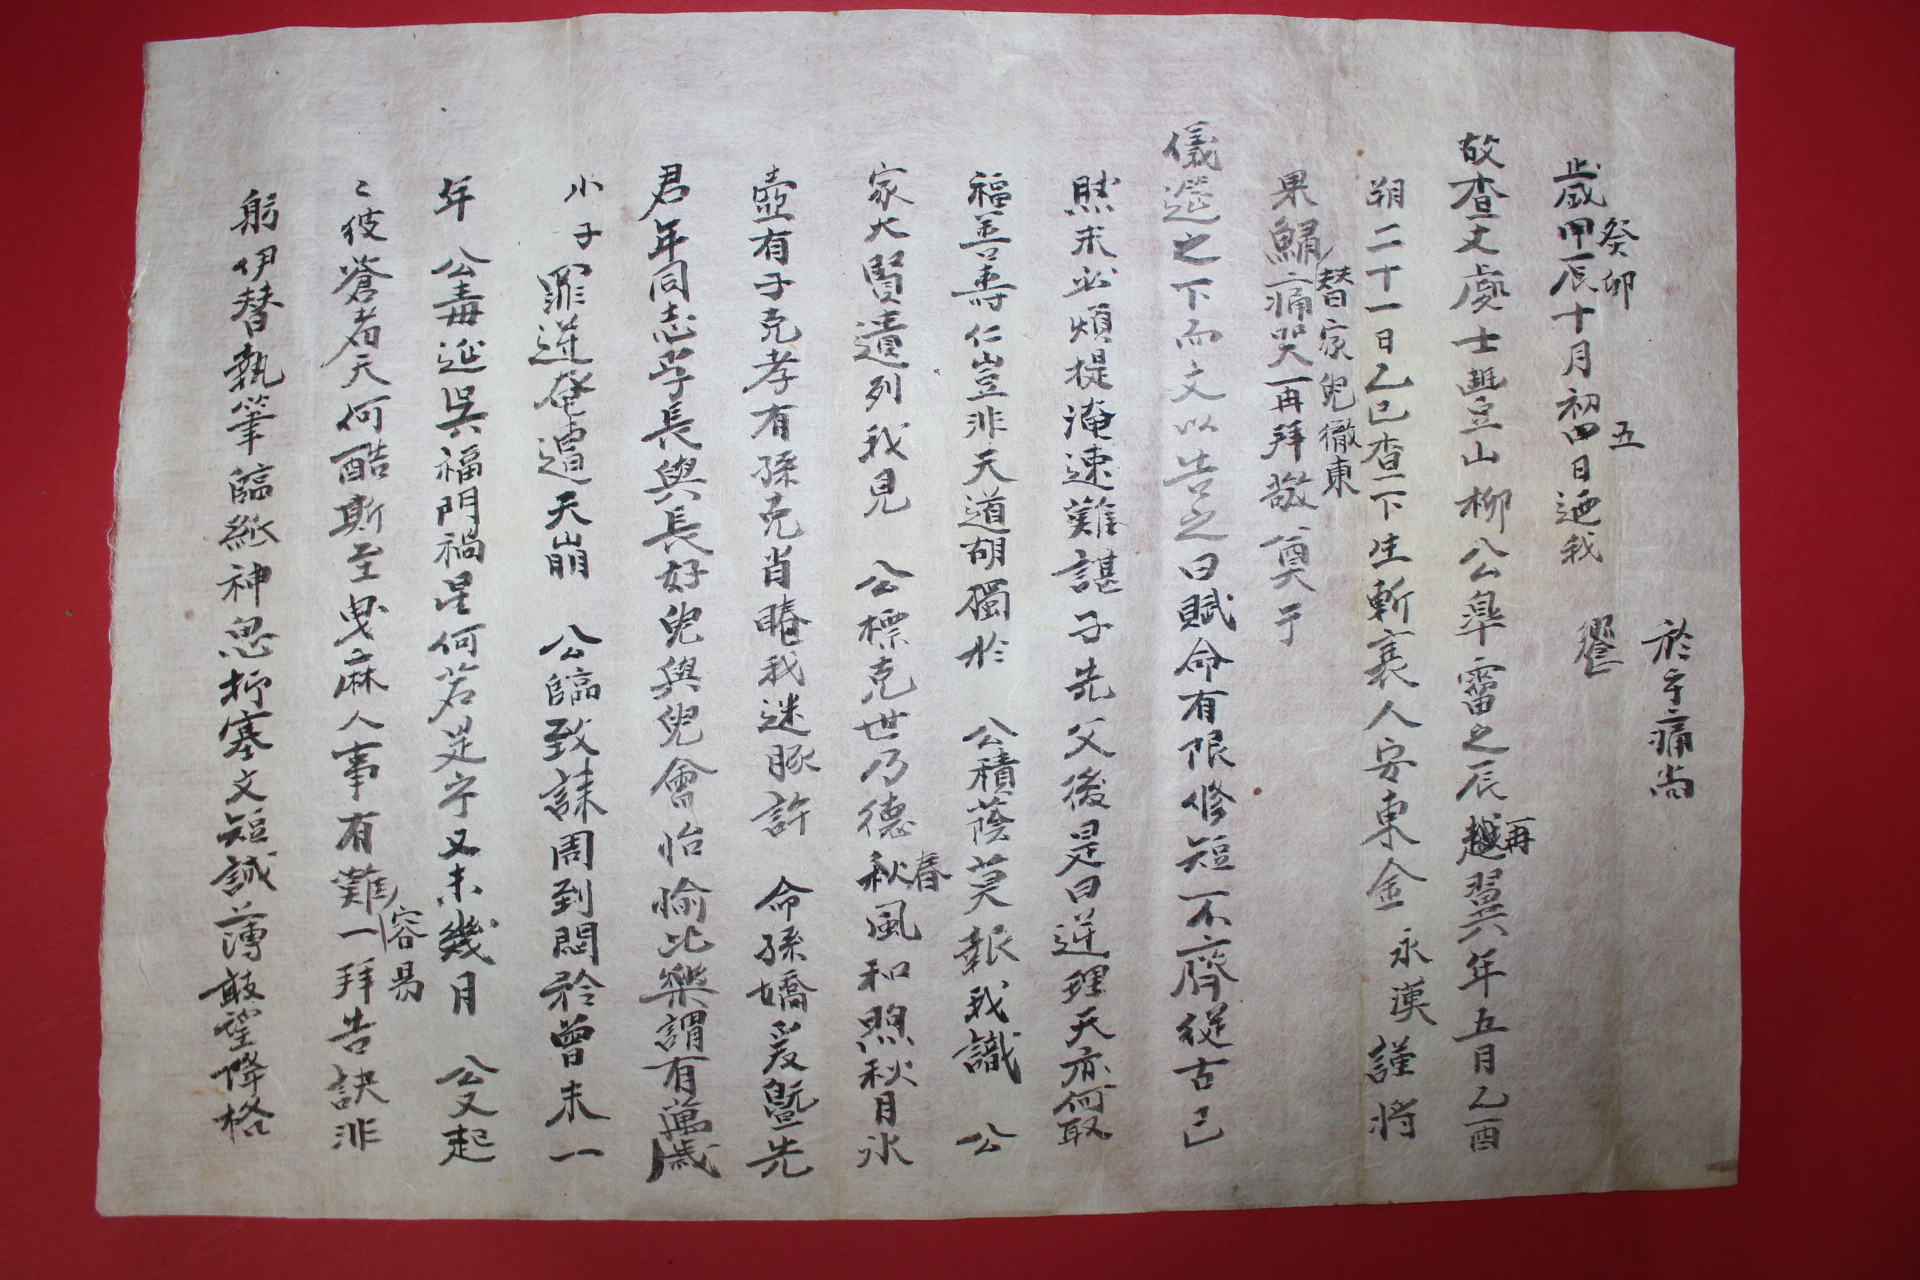 於乎痛尚
饗
癸卯 五
歲甲辰十月初四日迺我
故查丈處士豊山柳公皐甯之辰越再翌六年五月乙酉
朔二十一日乙巳查下生斬衰人安東金永漢謹將
果鱐替家兒徹東痛哭再拜敬奠于
儀筵之下而文以告之曰賦命有限修短不齊從古已
然未必煩提淹速難諶子先父後是曰逆理天亦何取
福善壽仁豈非天道胡獨於 公積蔭莫報我識 公
家大賢遺列我見 公標克世乃德秋春風和煦秋月氷
壺有子克孝有孫克肖睠我迷豚許 命孫嬌爰曁先
君年同志孚長與長好兒與兒會怡愉比樂謂有萬歲
小子罪逆奄遭天崩 公臨致誄周到悶矜曾未一
年 公毒逝吳福門禍星何若是字又未幾月 公又起
〻彼蒼者天何酷斯至曳麻人事有難容易一拜告訣非
躬伊替執筆臨紙神思抒塞文短誠薄敢望降格